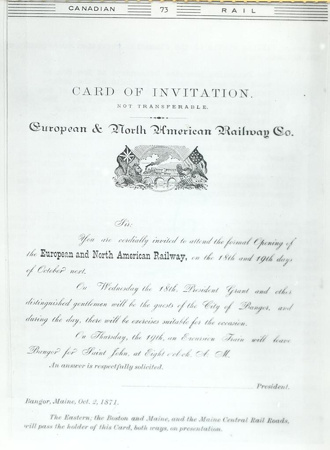 CANADIAN 73 RAIL
CARD OF INVITATION.
NOT TRANSFERABLE.
European & North American Railway Co.
Sir:
You are cordially invited to attend the formal Opening of
the European and North American Railway, on the 18th and 19th days
of October next.
On Wednesday the 18th, President Grant and other
distinguished gentlemen will be the guests of the City of Bangor, and
during the day, there will be exercises suitable for the occasion.
On Thursday, the 19th, an Excursion Train will leave
Bangor for Saint John, at Eight o'clock A. M.
An answer is respectfully solicited.
President.
Bangor, Maine, Oct. 2, 1871.
The Eastern, the Boston and Maine, and the Maine Central Rail Roads,
will pass the holder of this Card, both ways, on presentation.